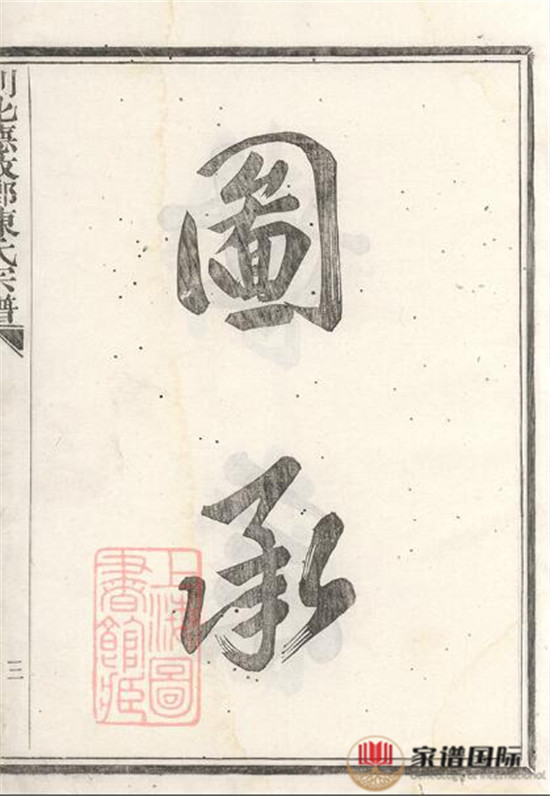 圖承
上海圖
書館藏
北德政鄉陳氏宗譜
三
家谱国际
Genealogy of International